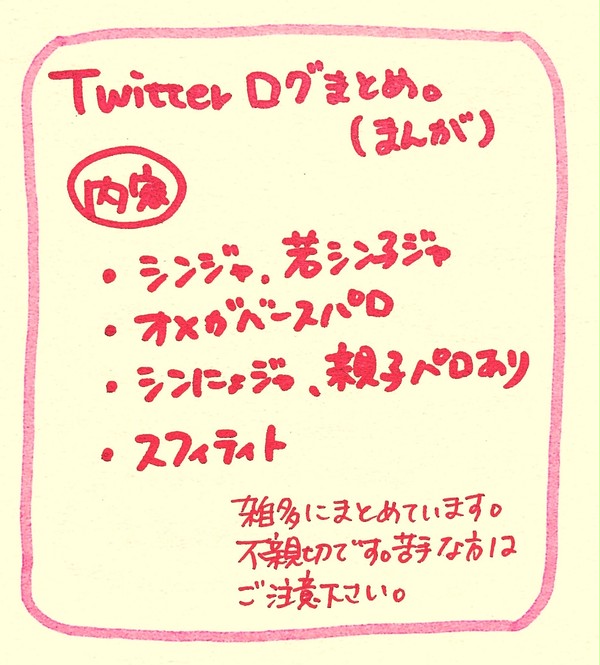 Twitter ログまとめ。
(まんが)
内容
・シンジャ、若シン子ジャ
・オメガバースパロ
・シンにょジャ、親子パロあり
・スフィティト
雑多にまとめています。
不親切です。苦手な方は
ご注意下さい。